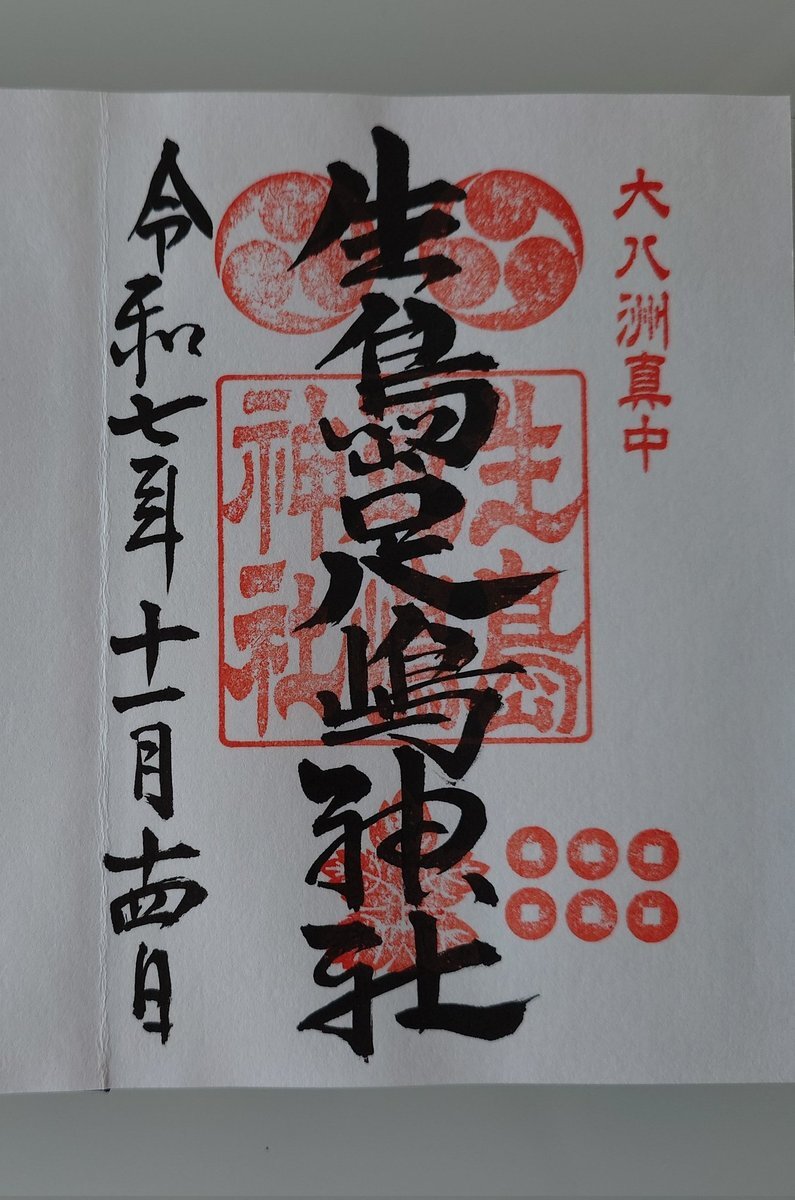 大八洲真中
生㠀足嶋神社
生島
神社
令和七年十一月十四日